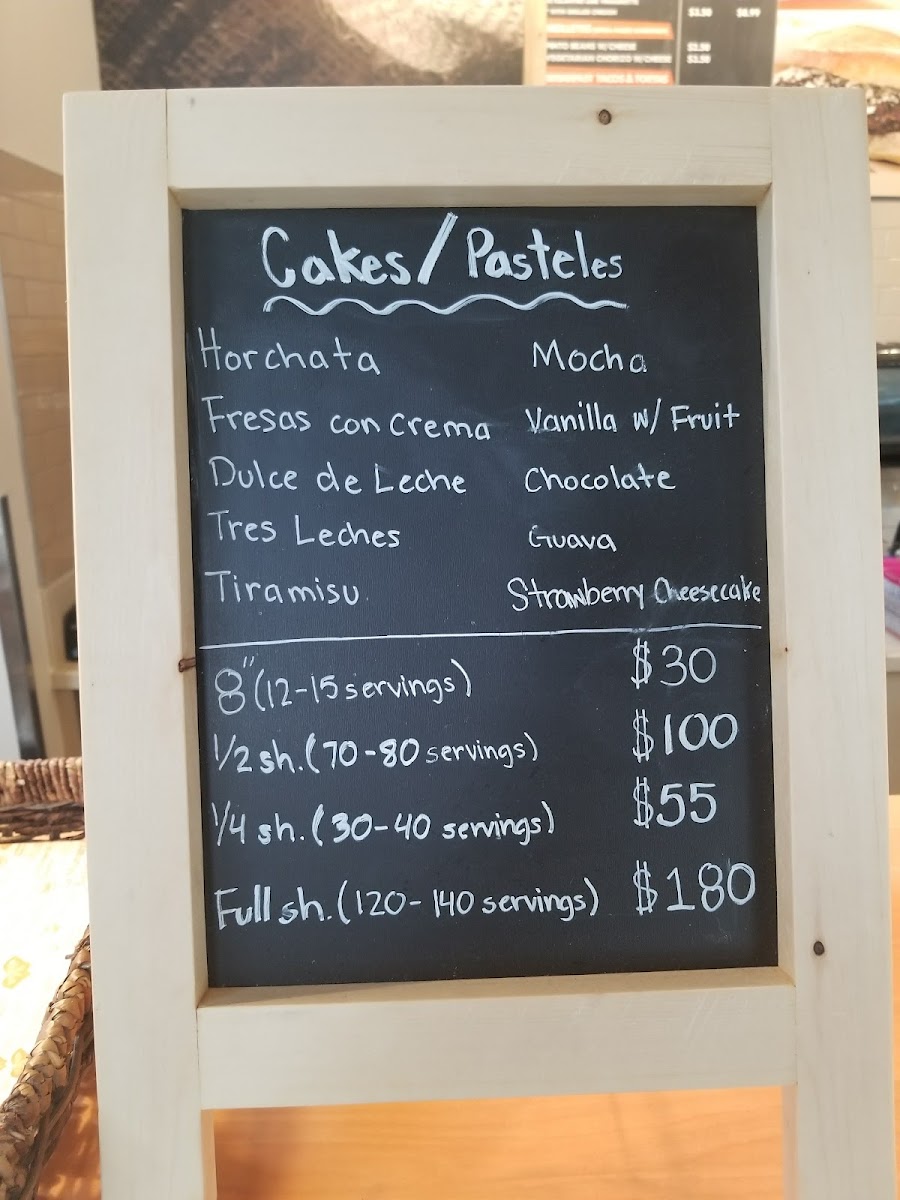 $3.50 $8.99
W/CHEESE
$3.50
VEGETARIAN CHORIZO W/CHEESE $3.50
Cakes/Pasteles
Horchata Mocha
Fresas con crema Vanilla w/ Fruit
Dulce de Leche Chocolate
Tres Leches Guava
Tiramisu Strawberry Cheesecake
8" (12-15 servings) $30
1/2 sh. (70-80 servings) $100
1/4 sh. (30-40 servings) $55
Full sh. (120-140 servings) $180